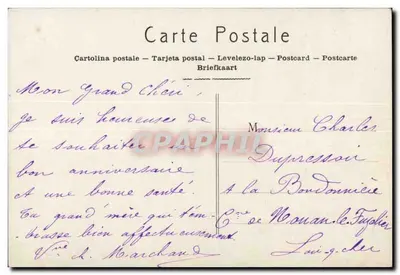 Carte Postale
Cartolina postale — Tarjeta postal — Levelezo-lap — Postcard — Postcarte
Briefkaart
Mon Grand Chéri,
Je suis heureuse de
te souhaiter un
bon anniversaire
et une bonne santé.
Ta grand' mère qui t'em-
brasse bien affectueusement
Vve A. Marchand
Monsieur Charles
Dupressoir
à la Bordonnière
Cne de Nouan-le-Fuzelier
Loir-&-Cher
CPAPHIL